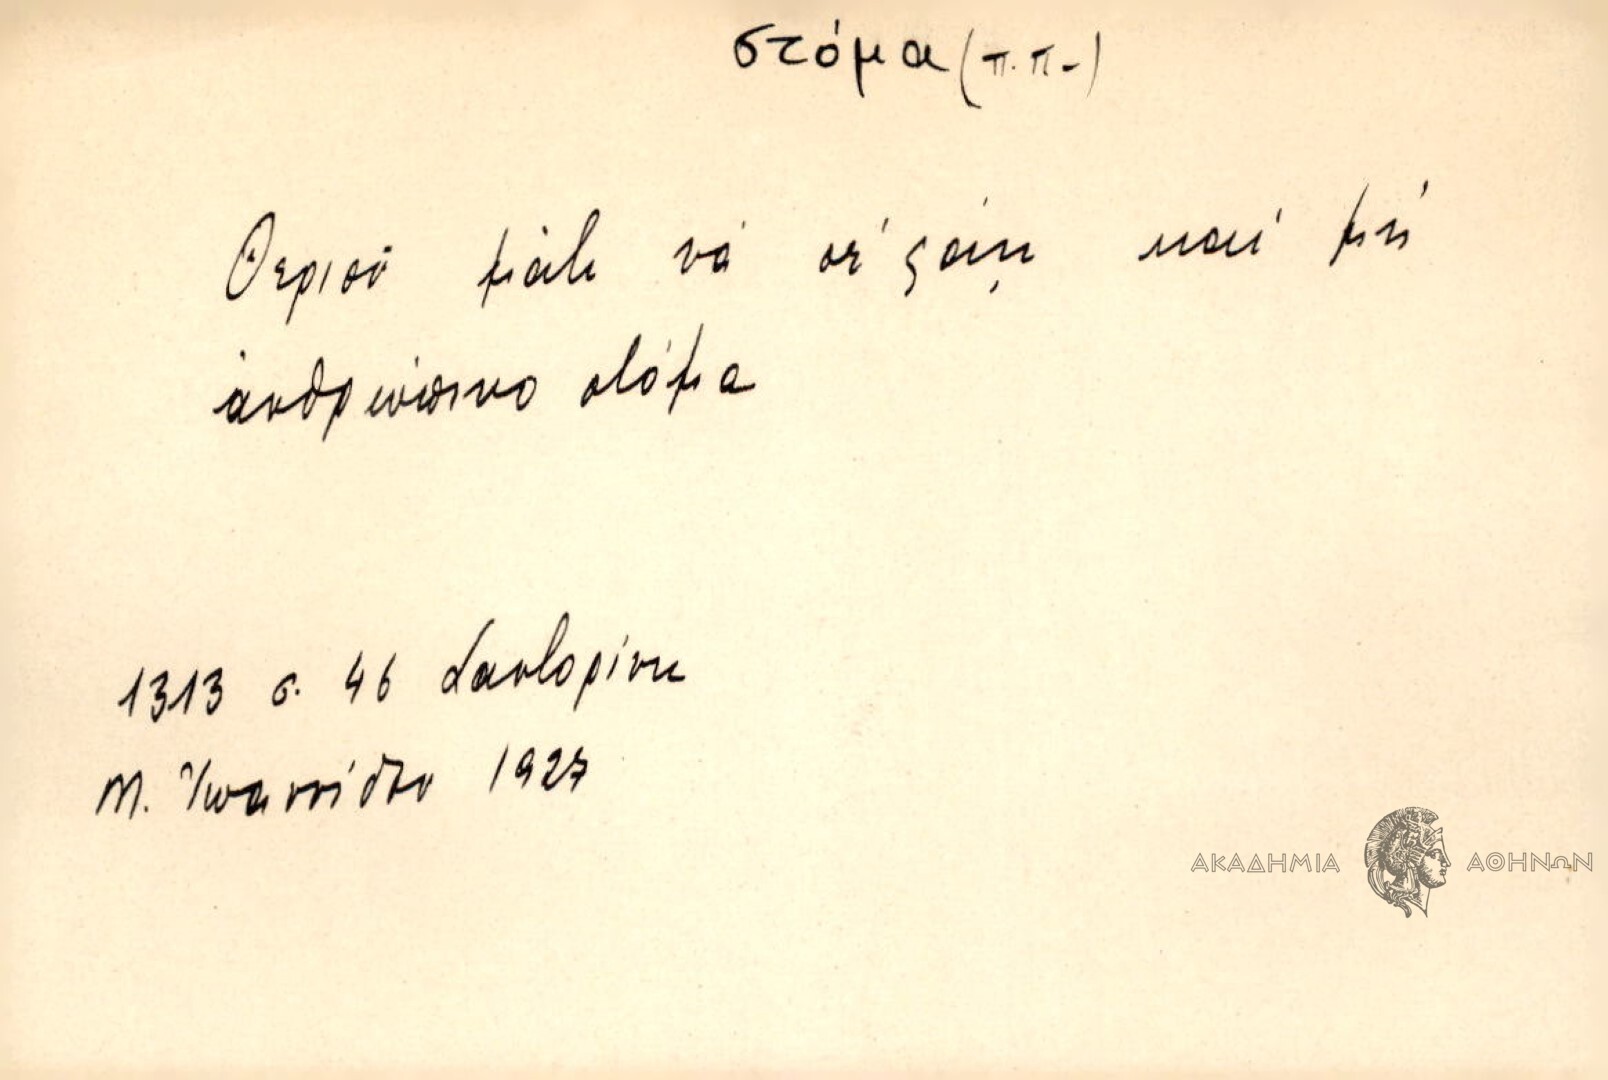 στόμα (π.π.)
Θεριοῦ μάτι νὰ σὲ φάῃ καὶ μὴ
ἀνθρώπινο στόμα
1313 σ. 46 Σαντορίνη
Μ. Ἰωαννίδου 1927
ΑΚΑΔΗΜΙΑ ΑΘΗΝΩΝ